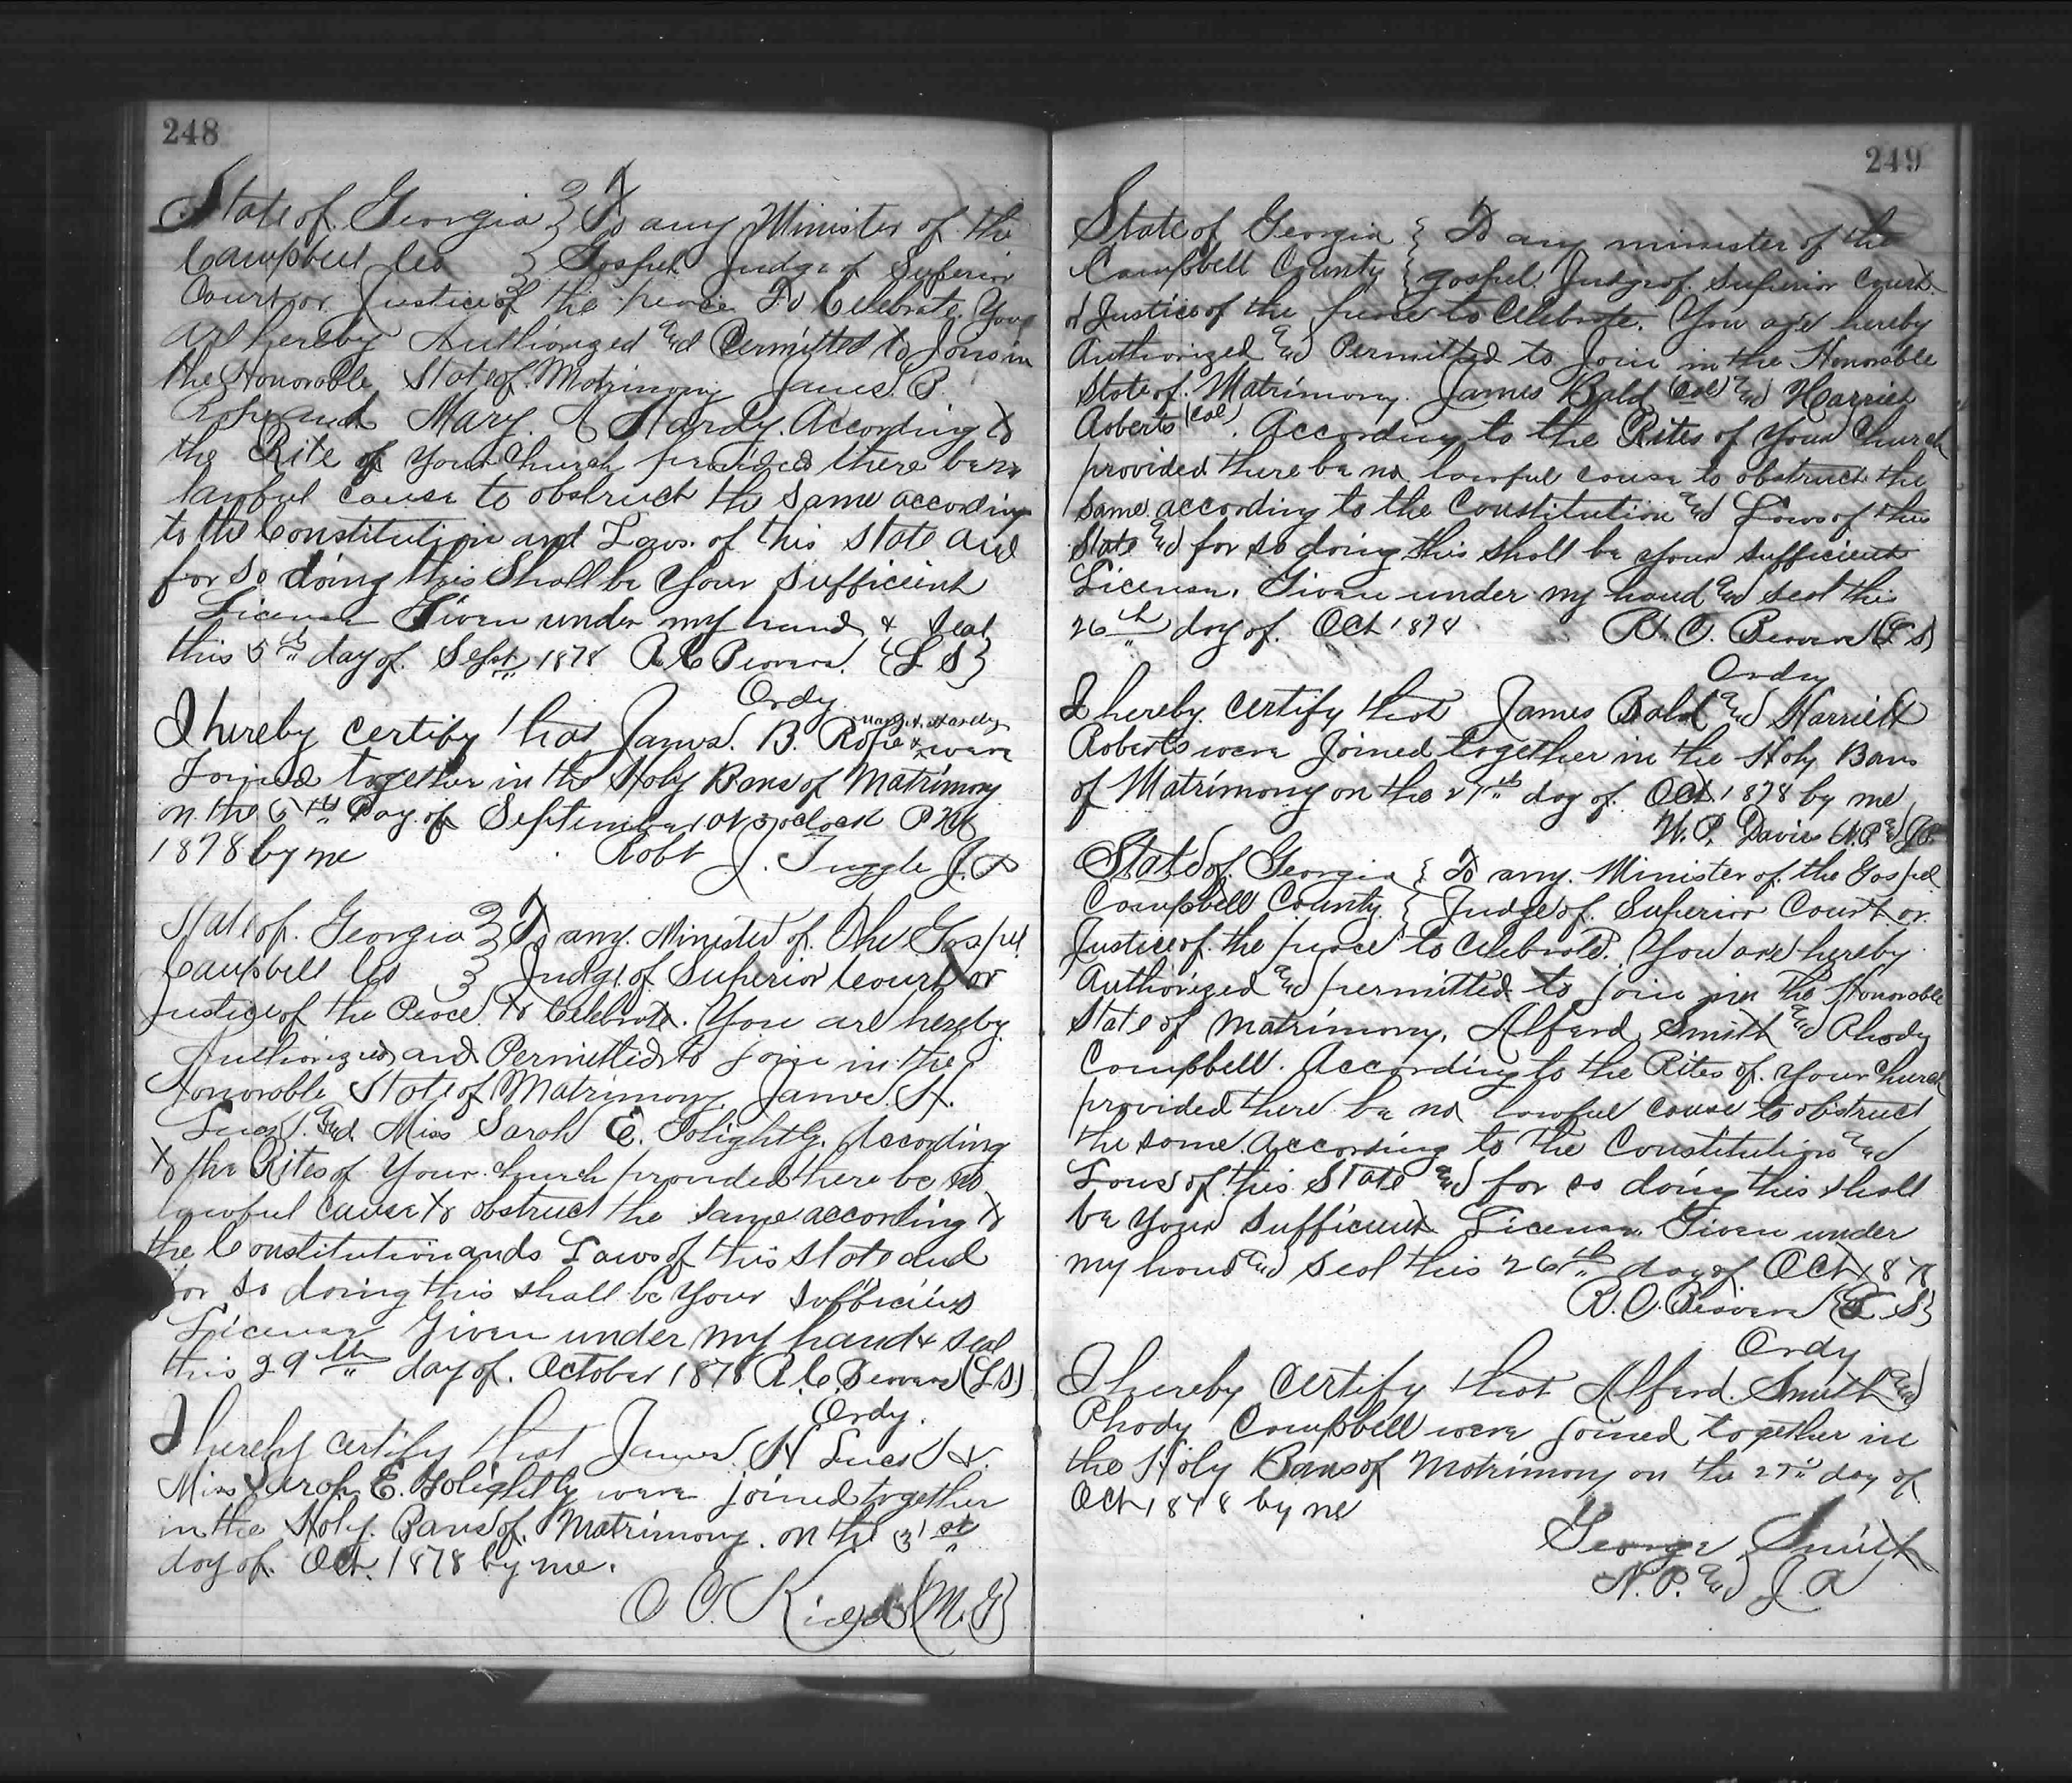 248
State of Georgia } To any Minister of the
Campbell Co } Gospel Judge of Superior
Court or Justice of the peace To Celebrate. You
are hereby Authorized and Permitted to Join in
the Honorable State of Matrimony James B.
Rope and Mary. A Hardy. According to
the Rite of your Church provided there be no
lawful cause to obstruct the same according
to the Constitution and Laws of this State and
for so doing this Shall be Your Sufficient
License Given under my hand & Seal
this 5th day of Sept 1878 R. C. Beavers {L S}
Ordy
I hereby certify that James. B. Rope & Mary A. Hardy were
Joined together in the Holy Bans of Matrimony
on the 5th Day of September at 3 oclock P M
1878 by me Robt J. Tuggle J. P
State of Georgia } To any Minister of The Gospel
Campbell Co } Judge of Superior Court or
Justice of the Peace to Celebrate. You are hereby
Authorized and Permitted to join in the
Honorable State of Matrimony James. H.
and Miss Sarah E. Golightly. According
to the Rites of Your church provided there be no
lawful cause to obstruct the same according to
the Constitution and Laws of this State and
for so doing this shall be Your sufficient
License Given under my hand & seal
this 29th day of October 1878 R. C. Beavers (L S)
Ordy.
I hereby certify that James. H &
Miss Sarah E. Golightly were joined together
in the Holy. Bans of Matrimony. on the 31st
day of Oct. 1878 by me.
O C. (M. G)
249
State of Georgia } To any minister of the
Campbell County } gospel. Judge of Superior Court
or Justice of the peace to Celebrate. You are hereby
Authorized and Permitted to Join in the Honorable
State of Matrimony. James Bald (Col) and Harriet
Roberts (Col). According to the Rites of Your Church
provided there be no lawful cause to obstruct the
same according to the Constitution and Laws of this
State and for so doing this shall be your sufficient
License. Given under my hand and seal this
26th day of Oct 1878 R. C. Beavers (L S)
Ordy
I hereby certify that James Bald and Harriett
Roberts were Joined together in the Holy Bans
of Matrimony on the 27th day of Oct 1878 by me
W. P. Davis N. P. and J. P.
State of Georgia } To any Minister of the Gospel
Campbell County } Judge of Superior Court or
Justice of the peace to Celebrate. You are hereby
Authorized and permitted to join in the Honorable
State of Matrimony, Alferd Smith and Rhody
Campbell. According to the Rites of Your Church
provided there be no lawful cause to obstruct
the same According to the Constitution and
Laws of this State and for so doing this shall
be Your Sufficient License Given under
my hand and seal this 26th day of Oct 1878
R. C. Beavers {L S}
Ordy
I hereby Certify that Alferd Smith and
Rhody Campbell were joined together in
the Holy Bans of Matrimony on the 27th day of
Oct 1878 by me
George Smith
N. P. and J. P.